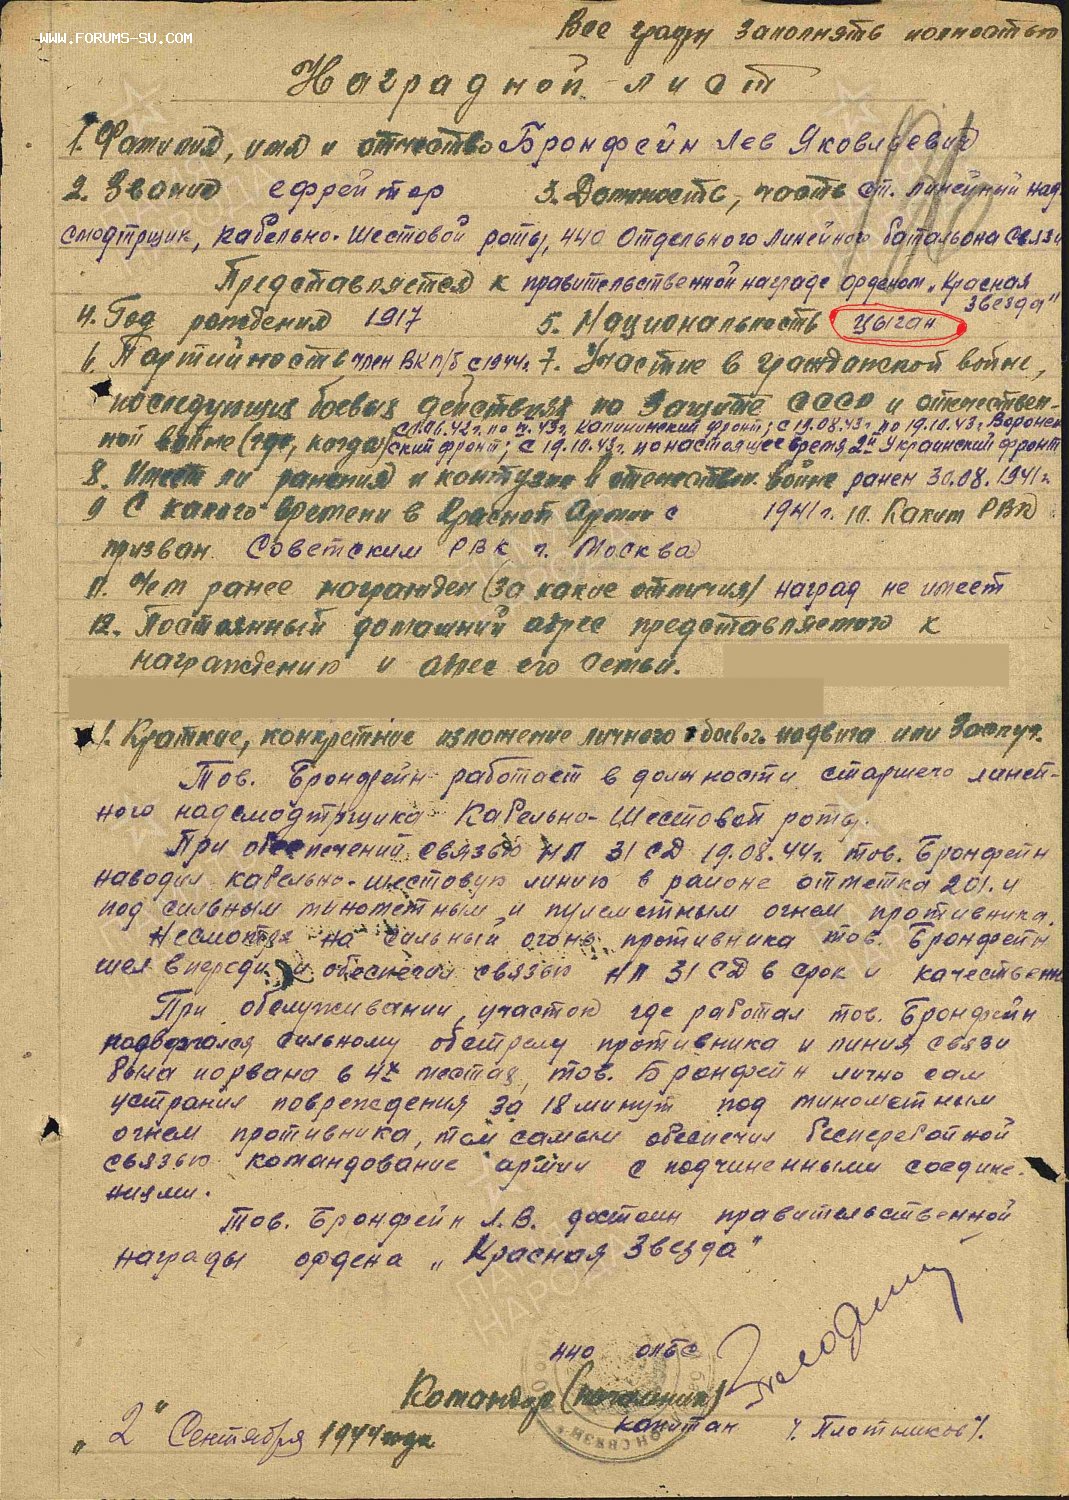 WWW.FORUMS-SU.COM
Все графы заполнять полностью
Наградной лист
1. Фамилия, имя и отчество Бронфейн Лев Яковлевич
2. Звание ефрейтор 3. Должность, часть ст. линейный над
смотрщик, кабельно-шестовой роты, 440 Отдельного линейного батальона связи
Представляется к правительственной награде орденом „Красная
Звезда"
4. Год рождения 1917 5. Национальность цыган
6. Партийность член ВКП/б с 1944г. 7. Участие в гражданской войне,
последующих боевых действиях по защите СССР и отечествен-
ной войне (где, когда) с 10.6.42г. по 43г. Калининский фронт; с 19.08.43г по 19.10.43г. Воронеж
ский фронт; с 19.10.43г. по настоящее время 2й Украинский фронт
8. Имеет ли ранения и контузии в отечествен. войне ранен 30.08.1941г.
9 С какого времени в Красной Армии с 1941г. 10. Каким РВК
призван Советским РВК г. Москва
11. Чем ранее награжден (за какие отличия) наград не имеет
12. Постоянный домашний адрес представляемого к
награждению и адрес его семьи.
1. Краткие, конкретные изложение личного боевог. подвига или заслуг.
Тов. Бронфейн работает в должности старшего линей-
ного надсмодтрщика Кабельно-Шестовой роты.
При обеспечений связью НП 31 СД 19.08.44г. тов. Бронфейн
наводил кабельно-шестовую линию в районе отметка 201.4
под сильным минометным и пулеметным огнем противника.
Несмотря на сильный огонь противника тов. Бронфейн
шел впереди и обеспечил связью НП 31 СД в срок и качественно
При обслуживании, участок где работал тов. Бронфейн
подвергался сильному обстрелу противника и линия связи
была порвана в 4х местах, тов. Бронфейн лично сам
устранил повреждения за 18 минут под минометным
огнем противника, тем самым обеспечил бесперебойной
связью командование армии с подчиненными соедине-
ниями.
Тов. Бронфейн Л.В. достоин правительственной
награды ордена „Красная Звезда"
440 ОЛБС
Командир (начальник)
капитан /. Плотников/.
„2" Сентября 1944 года